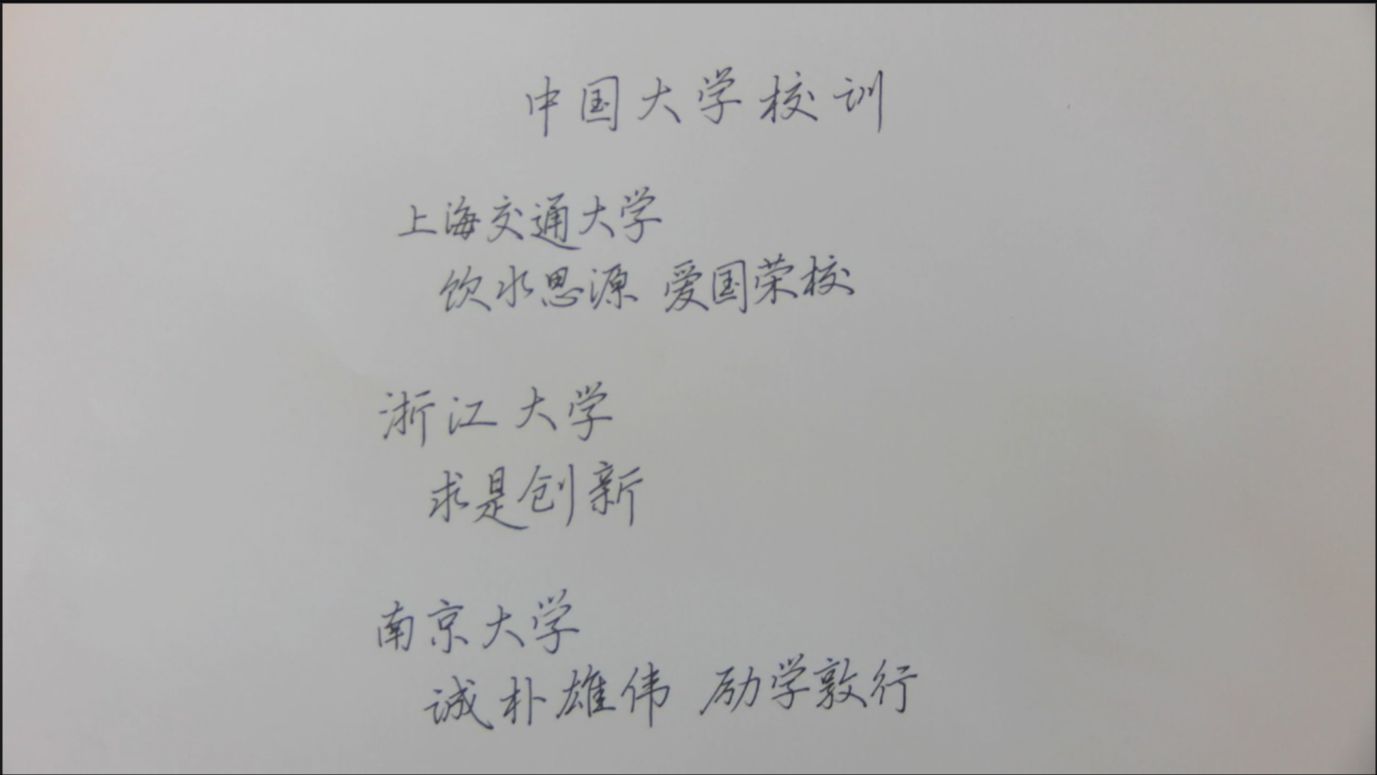 中国大学校训
上海交通大学
饮水思源 爱国荣校
浙江大学
求是创新
南京大学
诚朴雄伟 励学敦行